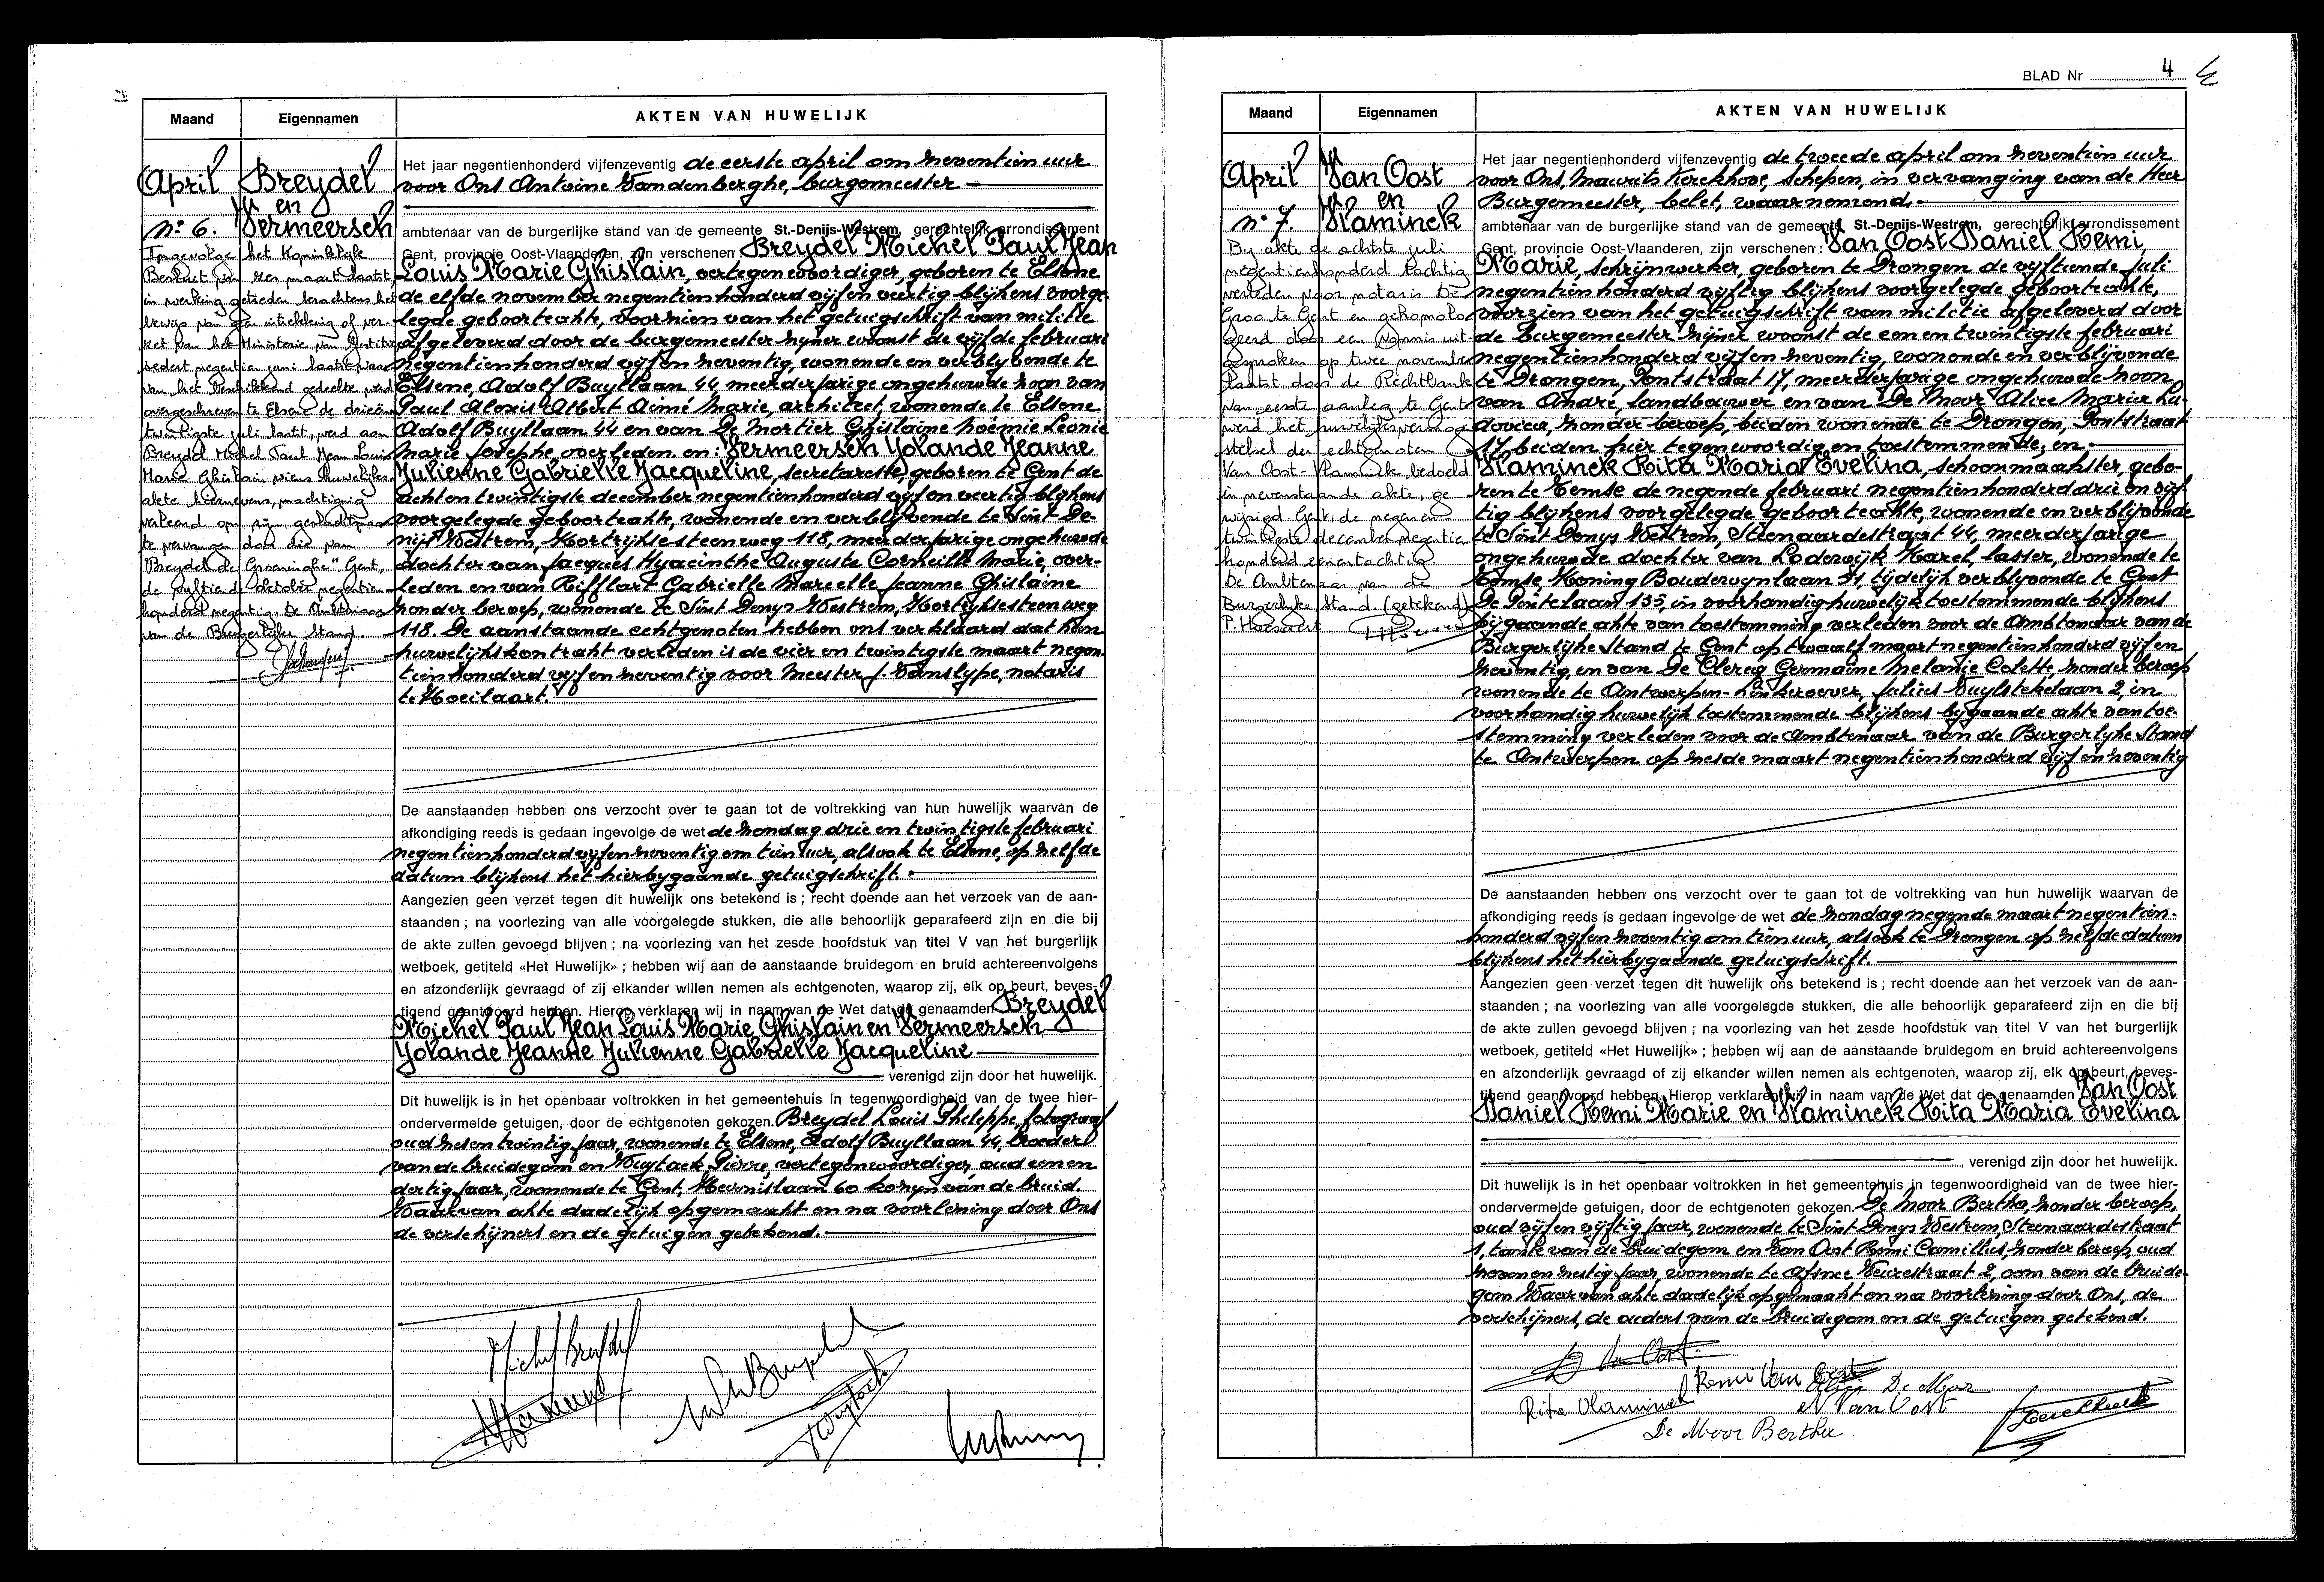 Maand Eigennamen AKTEN VAN HUWELIJK
April
n° 6.
Breydel
en
Vermeersch
Ingevolge het Koninklijk
Besluit van zes maart laatst,
in werking getreden krachtens het
bewijs van geen intrekking of ver-
zet van het Ministerie van Justitie
sedert negentien juni laatst, waar
van het beschikkend gedeelte werd
overgeschreven te Elsene de drieën
twintigste juli laatst, werd aan
Breydel Michel Paul Jean Louis
Marie Ghislain wiens huwelijks-
akte hiernevens, machtiging
verleend om zijn geslachtsnaam
te vervangen door die van
"Breydel de Groeninghe" Gent,
de vijftiende oktober negentien
honderd negentig. De Ambtenaar
van de Burgerlijke Stand
Het jaar negentienhonderd vijfenzeventig de eerste april om zeventien uur
voor Ons Antoine Vandenberghe, burgemeester
ambtenaar van de burgerlijke stand van de gemeente St.-Denijs-Westrem, gerechtelijk arrondissement
Gent, provincie Oost-Vlaanderen, zijn verschenen: Breydel Michel Paul Jean
Louis Marie Ghislain, vertegenwoordiger, geboren te Elsene
de elfde november negentienhonderd vijf en veertig blijkens voorge-
legde geboorteakte, voorzien van het getuigschrift van militie
afgeleverd door de burgemeester zijner woonst de vijfde februari
negentienhonderd vijf en zeventig, wonende en verblijvende te
Elsene, Adolf Buyllaan 44, meerderjarige ongehuwde zoon van
Paul Alexis Albert Aimé Marie, architect, wonende te Elsene
Adolf Buyllaan 44 en van De Mortier Ghislaine Noëmie Léonie
Marie Josephe, overleden. en: Vermeersch Yolande Jeanne
Julienne Gabrielle Jacqueline, secretaresse, geboren te Gent de
acht en twintigste december negentienhonderd vijf en veertig blijkens
voorgelegde geboorteakte, wonende en verblijvende te Sint De-
nijs Westrem, Kortrijksesteenweg 118, meerderjarige ongehuwde
dochter van Jacques Hyacinthe Auguste Corneille Marie, over-
leden en van Rifflart Gabrielle Marcelle Jeanne Ghislaine
zonder beroep, wonende te Sint Denys Westrem, Kortrijksesteenweg
118. De aanstaande echtgenoten hebben ons verklaard dat hun
huwelijkskontrakt verleden is de vier en twintigste maart negen-
tienhonderd vijf en zeventig voor Meester J. Vanslype, notaris
te Hoeilaart.
De aanstaanden hebben ons verzocht over te gaan tot de voltrekking van hun huwelijk waarvan de
afkondiging reeds is gedaan ingevolge de wet de zondag drie en twintigste februari
negentienhonderd vijfenzeventig om tien uur, alsook te Elsene, op zelfde
datum blijkens het hierbygaande getuigschrift.
Aangezien geen verzet tegen dit huwelijk ons betekend is ; recht doende aan het verzoek van de aan-
staanden ; na voorlezing van alle voorgelegde stukken, die alle behoorlijk geparafeerd zijn en die bij
de akte zullen gevoegd blijven ; na voorlezing van het zesde hoofdstuk van titel V van het burgerlijk
wetboek, getiteld «Het Huwelijk» ; hebben wij aan de aanstaande bruidegom en bruid achtereenvolgens
en afzonderlijk gevraagd of zij elkander willen nemen als echtgenoten, waarop zij, elk op beurt, beves-
tigend geantwoord hebben. Hierop verklaren wij in naam van de Wet dat de genaamden Breydel
Michel Paul Jean Louis Marie Ghislain en Vermeersch
Yolande Jeanne Julienne Gabrielle Jacqueline
verenigd zijn door het huwelijk.
Dit huwelijk is in het openbaar voltrokken in het gemeentehuis in tegenwoordigheid van de twee hier-
ondervermelde getuigen, door de echtgenoten gekozen. Breydel Louis Pheleppe, fotograaf
oud zesentwintig jaar, wonende te Elsene, Adolf Buyllaan 44, broeder
van de bruidegom en Wuytack Pierre, vertegenwoordiger, oud een en
dertig jaar, wonende te Gent, Heernislaan 60 kozyn van de bruid.
Waarvan akte dadelijk opgemaakt en na voorlezing door Ons
de verschijners en de getuigen getekend.
Michel Breydel
BLAD Nr 4
Maand Eigennamen AKTEN VAN HUWELIJK
April
n° 7.
Van Oost
en
Vlaminck
Bij akte de achtste juli
negentienhonderd tachtig
verleden voor notaris De
Groo te Gent en gehomolo
geerd door een Vonnis uit-
gesproken op twee november
laatst door de Rechtbank
van eerste aanleg te Gent
werd het huwelijksvermogen
stelsel der echtgenoten
Van Oost - Vlaminck bedoeld
in nevenstaande akte, ge
wijzigd. Gent, de negen en
twintigste december negentien
honderd eenentachtig
De Ambtenaar van de
Burgerlijke Stand (getekend)
Het jaar negentienhonderd vijfenzeventig de tweede april om zeventien uur
voor Ons, Maurits Kerckhove, Schepen, in vervanging van de Heer
Burgemeester, belet, waarnemend.
ambtenaar van de burgerlijke stand van de gemeente St.-Denijs-Westrem, gerechtelijk arrondissement
Gent, provincie Oost-Vlaanderen, zijn verschenen: Van Oost Daniel Remi
Marie, schrijnwerker, geboren te Drongen de vijftiende juli
negentienhonderd vijftig blijkens voorgelegde geboorteakte,
voorzien van het getuigschrift van militie afgeleverd door
de burgemeester zijner woonst de een en twintigste februari
negentienhonderd vijf en zeventig, wonende en verblijvende
te Drongen, Pontstraat 17, meerderjarige ongehuwde zoon
van André, landbouwer en van De Moor Alice Maria Lu-
dovica, zonder beroep, beiden wonende te Drongen, Pontstraat
17, beiden hier tegenwoordig en toestemmende, en:
Vlaminck Rita Maria Evelina, schoonmaakster, gebo-
ren te Temse de negende februari negentienhonderd drie en vijf-
tig blijkens voorgelegde geboorteakte, wonende en verblijvende
te Sint Denys Westrem, Steenaardestraat 44, meerderjarige
ongehuwde dochter van Lodewijk Karel, lasser, wonende te
Temse, Koning Boudewijnlaan 31, tijdelijk verblijvende te Gent
De Pintelaan 135, in voorhandig huwelijk toestemmende blijkens
bijgaande akte van toestemming verleden voor de Ambtenaar van de
Burgerlijke Stand te Gent op twaalf maart negentienhonderd vijf en
zeventig, en van De Clercq Germaine Melanie Colette, zonder beroep
wonende te Antwerpen-Linkeroever, Julius Vuylstekelaan 2, in
voorhandig huwelijk toestemmende blijkens bijgaande akte van toe-
stemming verleden voor de Ambtenaar van de Burgerlijke Stand
te Antwerpen op zesde maart negentienhonderd vijf en zeventig
De aanstaanden hebben ons verzocht over te gaan tot de voltrekking van hun huwelijk waarvan de
afkondiging reeds is gedaan ingevolge de wet de zondag negende maart negentien-
honderd vijfenzeventig om tien uur, alsook te Drongen op zelfde datum
blijkens het hierbygaande getuigschrift.
Aangezien geen verzet tegen dit huwelijk ons betekend is ; recht doende aan het verzoek van de aan-
staanden ; na voorlezing van alle voorgelegde stukken, die alle behoorlijk geparafeerd zijn en die bij
de akte zullen gevoegd blijven ; na voorlezing van het zesde hoofdstuk van titel V van het burgerlijk
wetboek, getiteld «Het Huwelijk» ; hebben wij aan de aanstaande bruidegom en bruid achtereenvolgens
en afzonderlijk gevraagd of zij elkander willen nemen als echtgenoten, waarop zij, elk op beurt, beves-
tigend geantwoord hebben. Hierop verklaren wij in naam van de Wet dat de genaamden Van Oost
Daniel Remi Marie en Vlaminck Rita Maria Evelina
verenigd zijn door het huwelijk.
Dit huwelijk is in het openbaar voltrokken in het gemeentehuis in tegenwoordigheid van de twee hier-
ondervermelde getuigen, door de echtgenoten gekozen. De Moor Bertha, zonder beroep,
oud vijf en vijftig jaar, wonende te Sint Denys Westrem, Steenaardestraat
1, tante van de bruidegom en Van Oost Remi Camillus, zonder beroep, oud
zeven en zestig jaar, wonende te Afsnee Veurestraat 2, oom van de bruide-
gom Waarvan akte dadelijk opgemaakt en na voorlezing door Ons, de
verschijners, de ouders van de bruidegom en de getuigen getekend.
D Van Oost
Remi Van Oost
Alice De Moor
Rita Vlaminck
A Van Oost
De Moor Bertha
Kerckhove